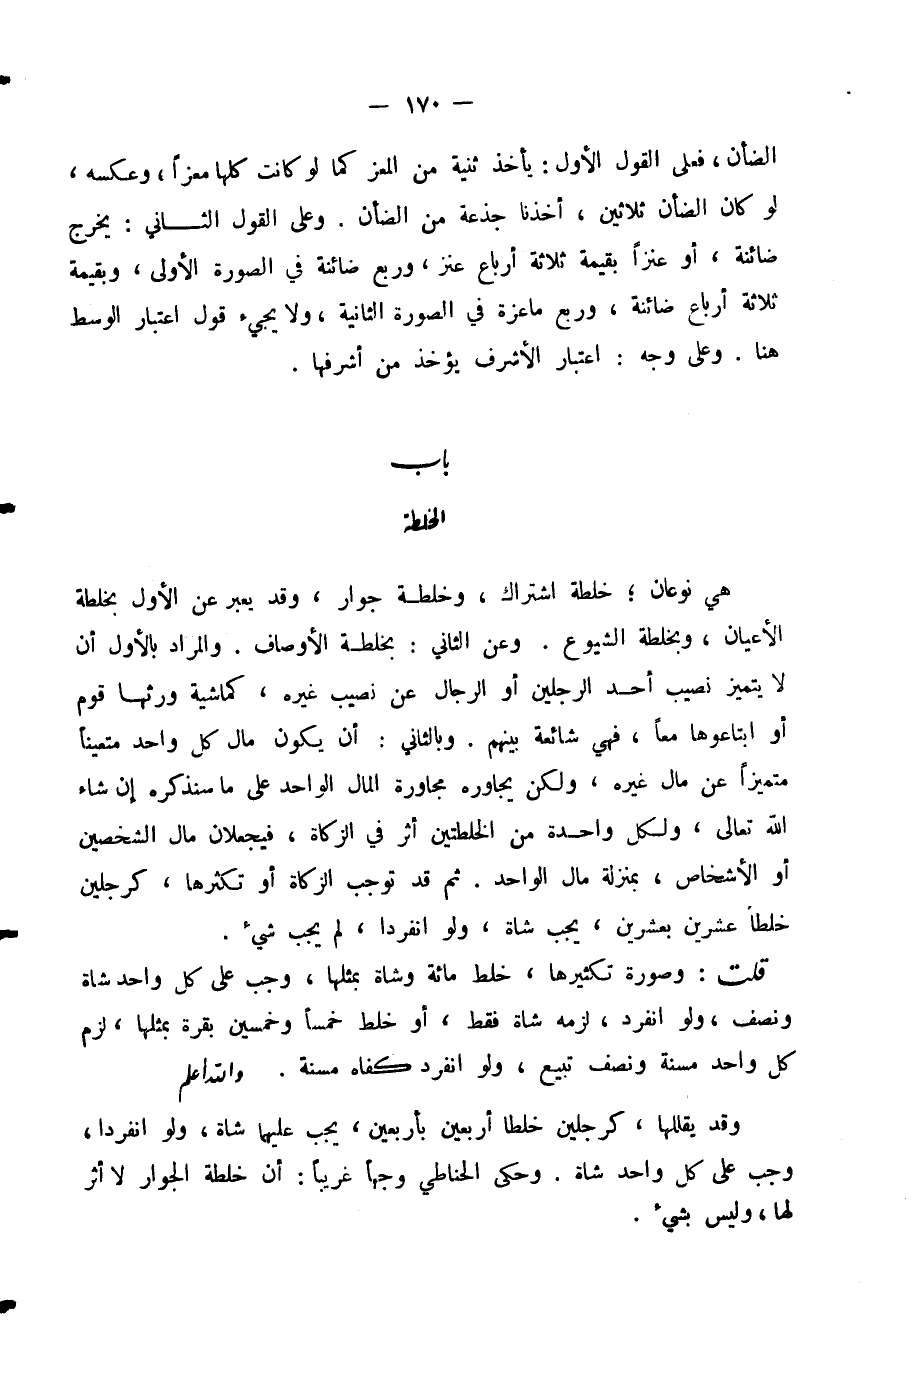 — ١٧٠ —
الضأن ، فعلى القول الأول : يأخذ ثنية من المعز كما لو كانت كلها معزاً ، وعكسه ،
لو كان الضأن ثلاثين ، أخذنا جذعة من الضأن . وعلى القول الثـــاني : يخرج
ضائنة ، أو عنزاً بقيمة ثلاثة أرباع عنز ، وربع ضائنة في الصورة الأولى ، وبقيمة
ثلاثة أرباع ضائنة ، وربع ماعزة في الصورة الثانية ، ولا يجيء قول اعتبار الوسط
هنا . وعلى وجه : اعتبار الأشرف يؤخذ من أشرفها .
باب
الخلطة
هي نوعان ؛ خلطة اشتراك ، وخلطـة جوار ، وقد يعبر عن الأول بخلطة
الأعيان ، وبخلطة الشيوع . وعن الثاني : بخلطـة الأوصاف . والمراد بالأول أن
لا يتميز نصيب أحـد الرجلين أو الرجال عن نصيب غيره ، كماشية ورثهـا قوم
أو ابتاعوها معاً ، فهي شائعة بينهم . وبالثاني : أن يكون مال كل واحد متعيناً
متميزاً عن مال غيره ، ولكن يجاوره مجاورة المال الواحد على ما سنذكره إن شاء
الله تعالى ، ولكل واحـدة من الخلطتين أثر في الزكاة ، فيجعلان مال الشخصين
أو الأشخاص ، بمنزلة مال الواحد . ثم قد توجب الزكاة أو تكثرها ، كرجلين
خلطا عشرين بعشرين ، يجب شاة ، ولو انفردا ، لم يجب شيء .
قلت : وصورة تكثيرها ، خلط مائة وشاة بمثلها ، وجب على كل واحد شاة
ونصف ، ولو انفرد ، لزمه شاة فقط ، أو خلط خمساً وخمسين بقرة بمثلها ، لزم
كل واحد مسنة ونصف تبيع ، ولو انفرد كفاه مسنة . والله أعلم
وقد يقللها ، كرجلين خلطا أربعين بأربعين ، يجب عليها شاة ، ولو انفردا ،
وجب على كل واحد شاة . وحكى الحناطي وجهاً غريباً : أن خلطة الجوار لا أثر
لها ، وليس بشيء .